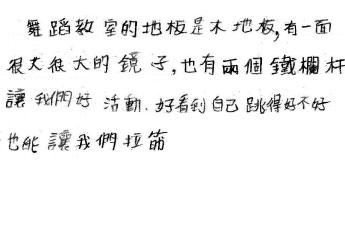 舞蹈教室的地板是木地板,有一面
很大很大的鏡子,也有兩個鐵欄杆
讓我們好活動、好看到自己跳得好不好
也能讓我們拉筋